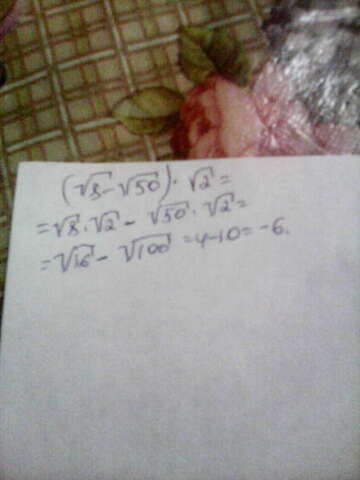 (√8-√50)·√2=
=√8·√2-√50·√2=
=√16-√100=4-10=-6.